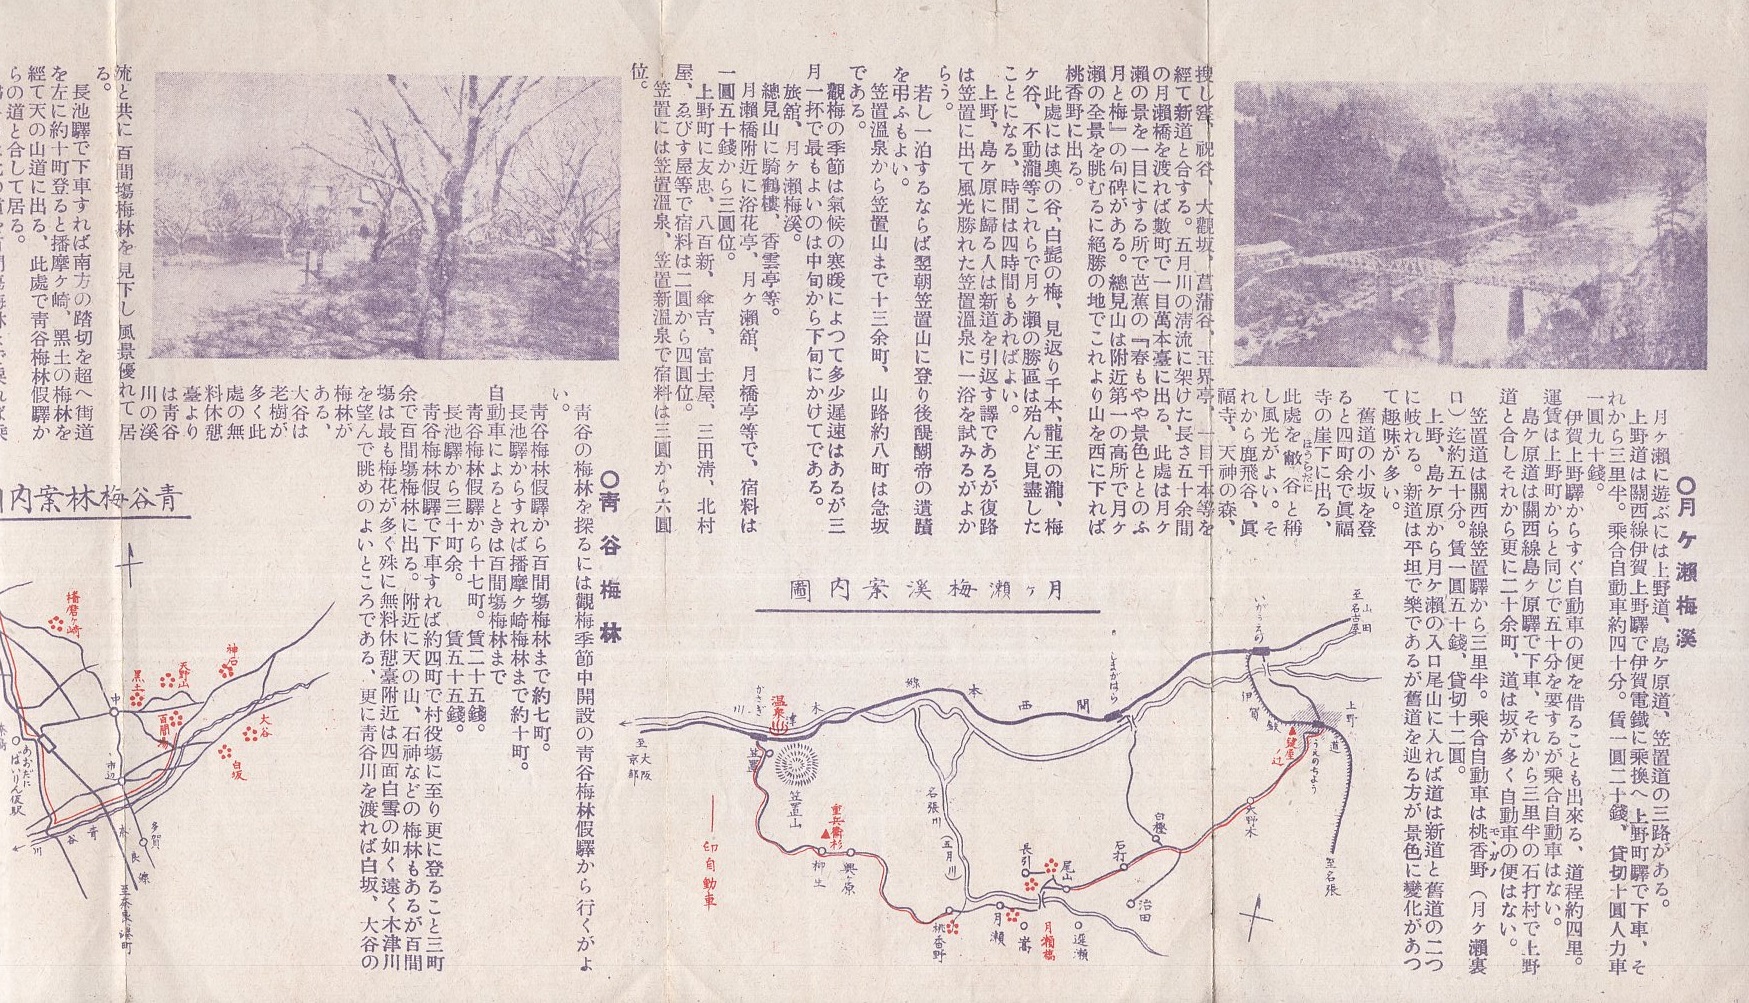 〇月ケ瀬梅溪
月ケ瀬に遊ぶには上野道、島ケ原道、笠置道の三路がある。
上野道は關西線伊賀上野驛で伊賀電鐵に乘換へ上野町驛で下車、そ
れから三里半。乘合自動車約四十分。賃一圓二十錢、貸切十圓人力車
一圓九十錢。
伊賀上野驛からすぐ自動車の便を借ることも出來る、道程約四里。
運賃は上野町からと同じで五十分を要するが乘合自動車はない。
島ケ原道は關西線島ケ原驛で下車、それから三里半の石打村で上野
道と合しそれから更に二十余町、道は坂が多く自動車の便はない。
笠置道は關西線笠置驛から三里半。乘合自動車は桃香野（月ケ瀬裏
口）迄約五十分。賃一圓五十錢、貸切十二圓。
上野、島ケ原から月ケ瀬の入口尾山に入れば道は新道と舊道の二つ
に岐れる。新道は平坦で樂であるが舊道を辿る方が景色に變化があつ
て趣味が多い。
舊道の小坂を登
ると四町余で眞福
寺の崖下に出る、
此處を敝谷と稱
し風光がよい。そ
れから鹿飛谷、眞
福寺、天神の森、
搜し窪、祝谷、大觀坂、菖蒲谷、玉界亭、一目千本等を
經て新道と合する。五月川の淸流に架けた長さ五十余間
の月瀬橋を渡れば數町で一目萬本臺に出る、此處は月ケ
瀬の景を一目にする所で芭蕉の『春もやや景色ととのふ
月と梅』の句碑がある。總見山は附近第一の高所で月ケ
瀬の全景を眺むるに絕勝の地でこれより山を西に下れば
桃香野に出る。
此處には奧の谷、白髭の梅、見返り千本、龍王の瀧、梅
ケ谷、不動瀧等これらで月ケ瀬の勝區は殆んど見盡した
ことになる、時間は四時間もあればよい。
上野、島ケ原に歸る人は新道を引返す譯であるが復路
は笠置に出て風光勝れた笠置溫泉に一浴を試みるがよか
らう。
若し一泊するならば翌朝笠置山に登り後醍醐帝の遺蹟
を弔ふもよい。
笠置溫泉から笠置山まで十三余町、山路約八町は急坂
である。
觀梅の季節は氣候の寒暖によつて多少遲速はあるが三
月一杯で最もよいのは中旬から下旬にかけてである。
旅舘、月ケ瀬梅溪。
總見山に騎鶴樓、香雲亭等。
月瀬橋附近に浴花亭、月ケ瀬舘、月橋亭等で、宿料は
一圓五十錢から三圓位。
上野町に友忠、八百新、傘吉、富士屋、三田淸、北村
屋、ゑびす屋等で宿料は二圓から四圓位。
笠置には笠置溫泉、笠置新溫泉で宿料は三圓から六圓
位。
〇靑谷梅林
靑谷の梅林を探るには觀梅季節中開設の靑谷梅林假驛から行くがよ
い。
靑谷梅林假驛から百間塲梅林まで約七町。
長池驛からすれば播摩ケ崎梅林まで約十町。
自動車によるときは百間塲梅林まで
靑谷梅林假驛から十七町。賃二十五錢。
長池驛から三十町余。　賃五十五錢。
靑谷梅林假驛で下車すれば約四町で村役塲に至り更に登ること三町
余で百間塲梅林に出る。附近に天の山、石神などの梅林もあるが百間
塲は最も梅花が多く殊に無料休憩臺附近は四面白雪の如く遠く木津川
を望んで眺めのよいところである、更に靑谷川を渡れば白坂、大谷の
梅林が
ある、
大谷は
老樹が
多く此
處の無
料休憩
臺より
は靑谷
川の溪
流と共に百間塲梅林を見下し風景優れて居
る。
長池驛で下車すれば南方の踏切を超へ街道
を左に約十町登ると播摩ケ崎、黑土の梅林を
經て天の山道に出る、此處で靑谷梅林假驛か
らの道と合して居る。
月ヶ瀬梅溪案內圖
至山田
名古屋
いがうえの
しまがはら
關西本線
伊賀線
上野
うえのちよう
鍵屋ノ辻
至名張
大野木
白樫
石打
治田
尾山
長引
月瀬橋
遲瀬
嵩
月瀬
桃香野
名張川
（五月川）
奧ヶ原
柳生
重兵衞杉
笠置山
笠置
かさぎ
溫泉
木津川
至大阪
京都
印自動車
靑谷梅林案內
播磨ヶ崎
黑土
天野山
神石
百間塲
大谷
白坂
中
市辺
あおだに
ばいりん仮駅
靑谷川
多賀
奈良線